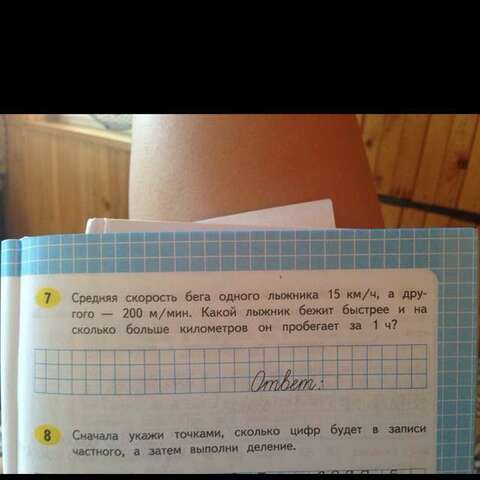 7 Средняя скорость бега одного лыжника 15 км/ч, а дру-
гого — 200 м/мин. Какой лыжник бежит быстрее и на
сколько больше километров он пробегает за 1 ч?
Ответ:
8 Сначала укажи точками, сколько цифр будет в записи
частного, а затем выполни деление.